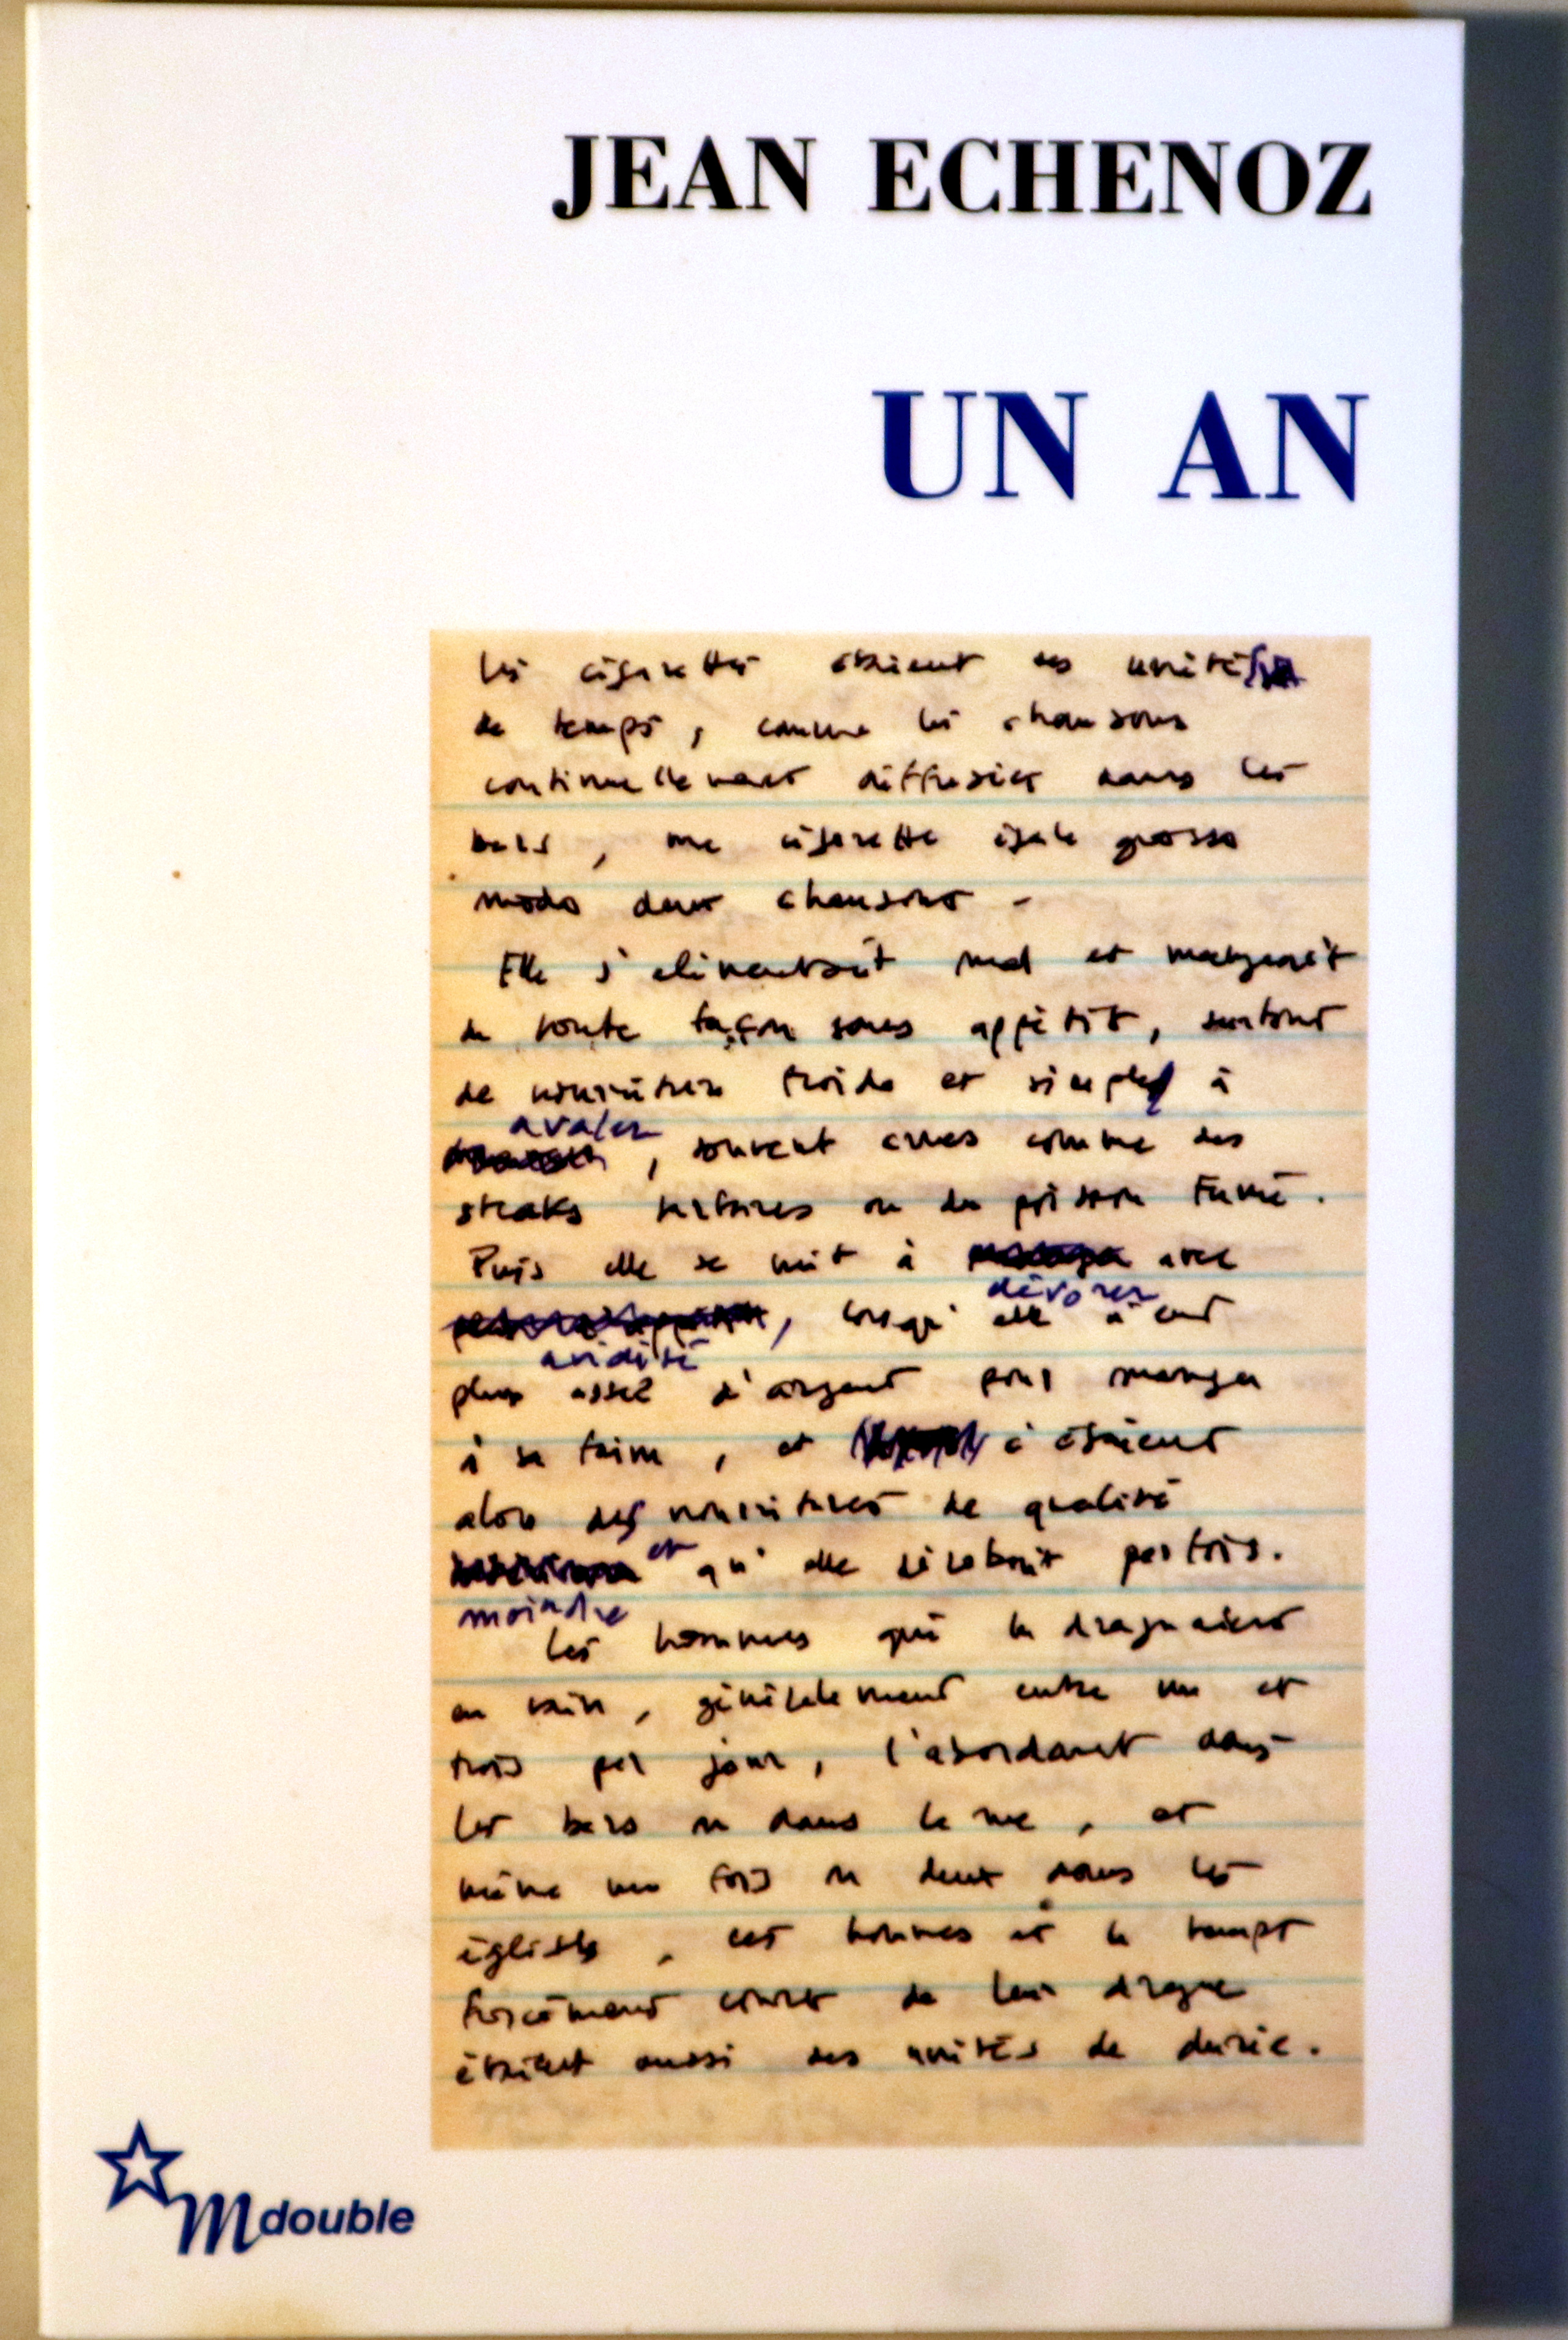 JEAN ECHENOZ
UN AN
les cigarettes étaient des unités
de temps, comme les chansons
continuellement diffusées dans les
bars, une cigarette égale grosso
modo deux chansons.
Elle s'alimentait mal et mangeait
de toute façon sans appétit, surtout
de nourriture froide et simple à
avaler
, souvent crues comme des
steaks tartares ou du poisson fumé.
Puis elle se mit à avec
dévorer
, lorsqu'elle n'eut
avidité
plus assez d'argent pour manger
à sa faim, et c'étaient
alors des nourritures de qualité
et qu'elle dérobait parfois.
moindre
Les hommes qui la draguaient
en vain, généralement entre un et
trois par jour, l'abordant dans
les bars ou dans la rue, et
même une fois ou deux dans les
églises, ces hommes et le temps
forcément court de leur drague
étaient aussi des unités de durée.
M double